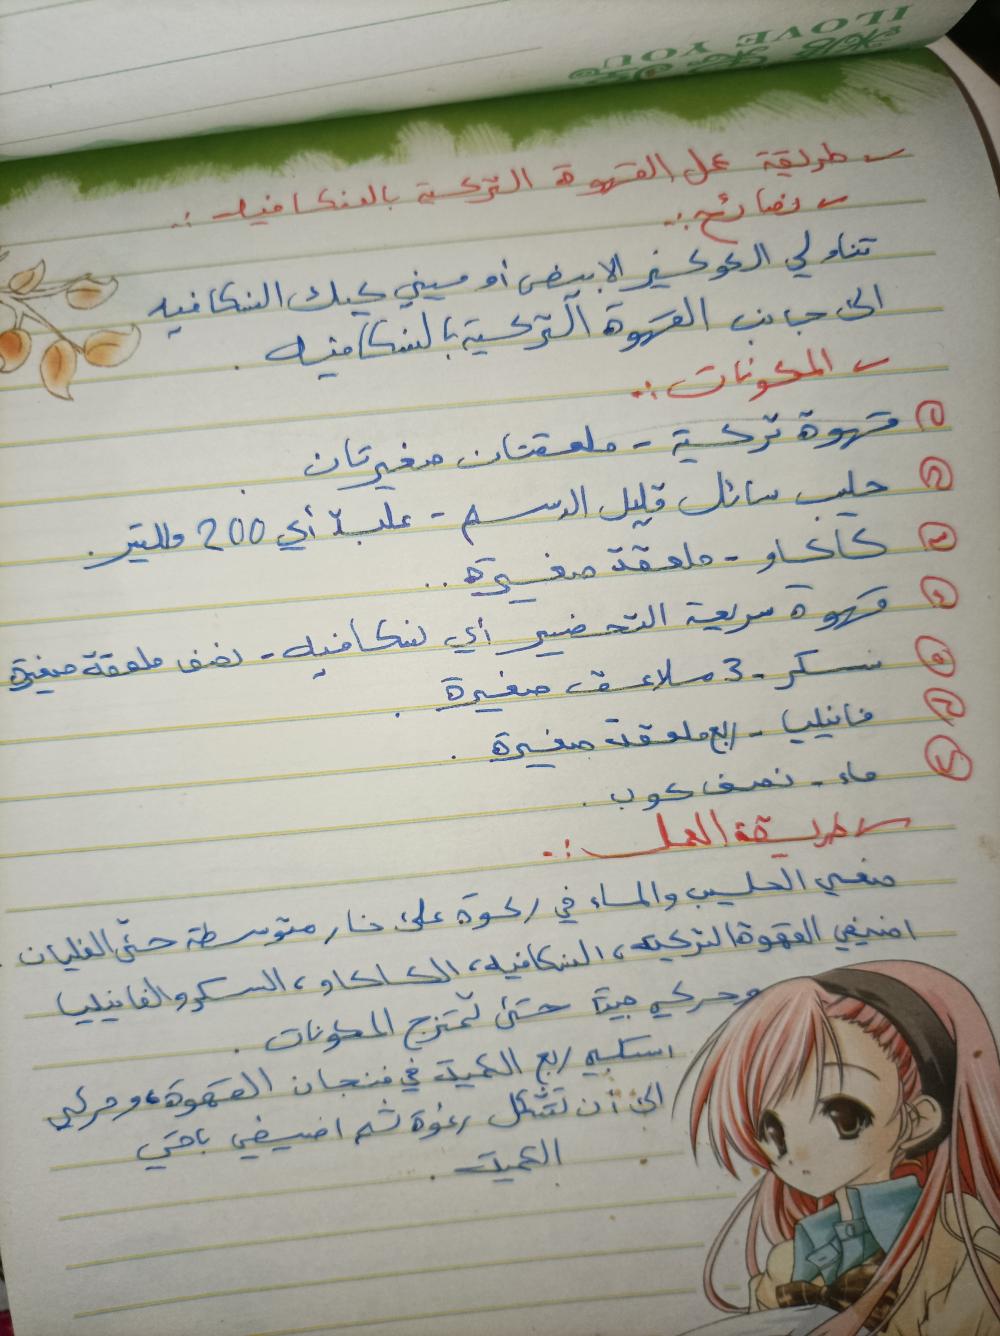 I LOVE YOU
طريقة عمل القهوة التركية بالنسكافيه :.
نصائح :.
تناولي الكوكيز الابيض أو ميني كيك النسكافيه
الى جانب القهوة التركية بالنسكافيه .
المكونات :.
١ قهوة تركية - ملعقتان صغيرتان .
٢ حليب سائل قليل الدسم - علبة أي 200 ملليتر .
٣ كاكاو - ملعقة صغيرة ..
٤ قهوة سريعة التحضير أي نسكافيه - نصف ملعقة صغيرة
٥ سكر - 3 ملاعق صغيرة .
٦ فانيليا - ربع ملعقة صغيرة .
٧ ماء - نصف كوب .
طريقة العمل :.
ضعي الحليب والماء في ركوة على نار متوسطة حتى الغليان .
اضيفي القهوة التركية، النسكافيه، الكاكاو، السكر والفانيليا
وحركي جيدًا حتى تمتزج المكونات .
اسكبي ربع الكمية في فنجان القهوة، وحركي
الى أن تتشكل رغوة ثم اضيفي باقي
الكمية .